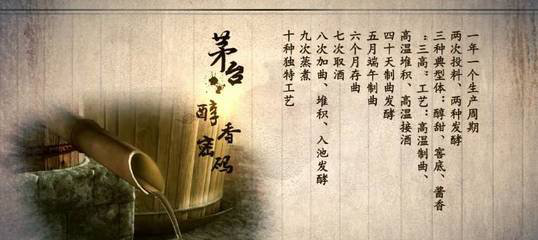 一年一个生产周期
两次投料、两种发酵
三种典型体：醇甜、窖底、酱香
“三高”工艺：高温制曲、
高温堆积、高温接酒
四十天制曲发酵
五月端午制曲
六个月存曲
七次取酒
八次加曲、堆积、入池发酵
九次蒸煮
十种独特工艺
茅台
醇香
密码